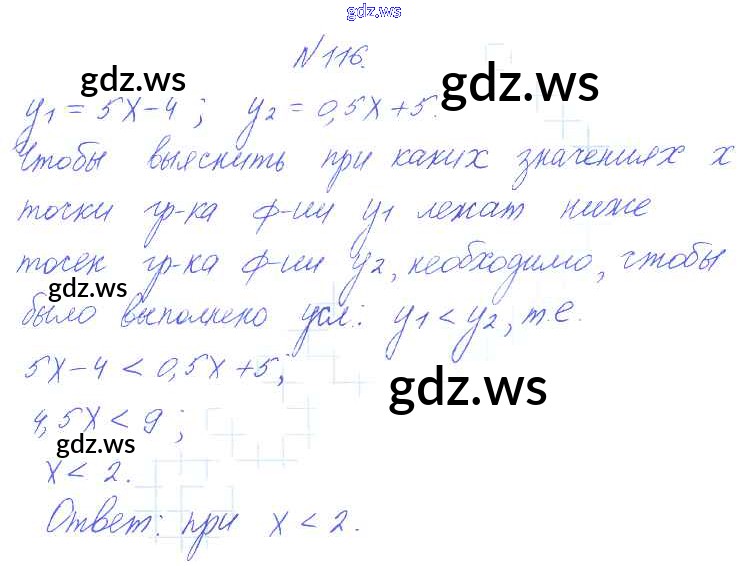 gdz.ws
N 116.
gdz.ws
gdz.ws
y₁ = 5x-4; y₂ = 0,5x+5.
Чтобы выяснить при каких значениях x
точки гр-ка ф-ии y₁ лежат ниже
точек гр-ка ф-ии y₂, необходимо, чтобы
gdz.ws
было выполнено усл: y₁ < y₂, т.е.
5x-4 < 0,5x+5;
gdz.ws
4,5x < 9;
gdz.ws
x < 2.
Ответ: при x < 2.